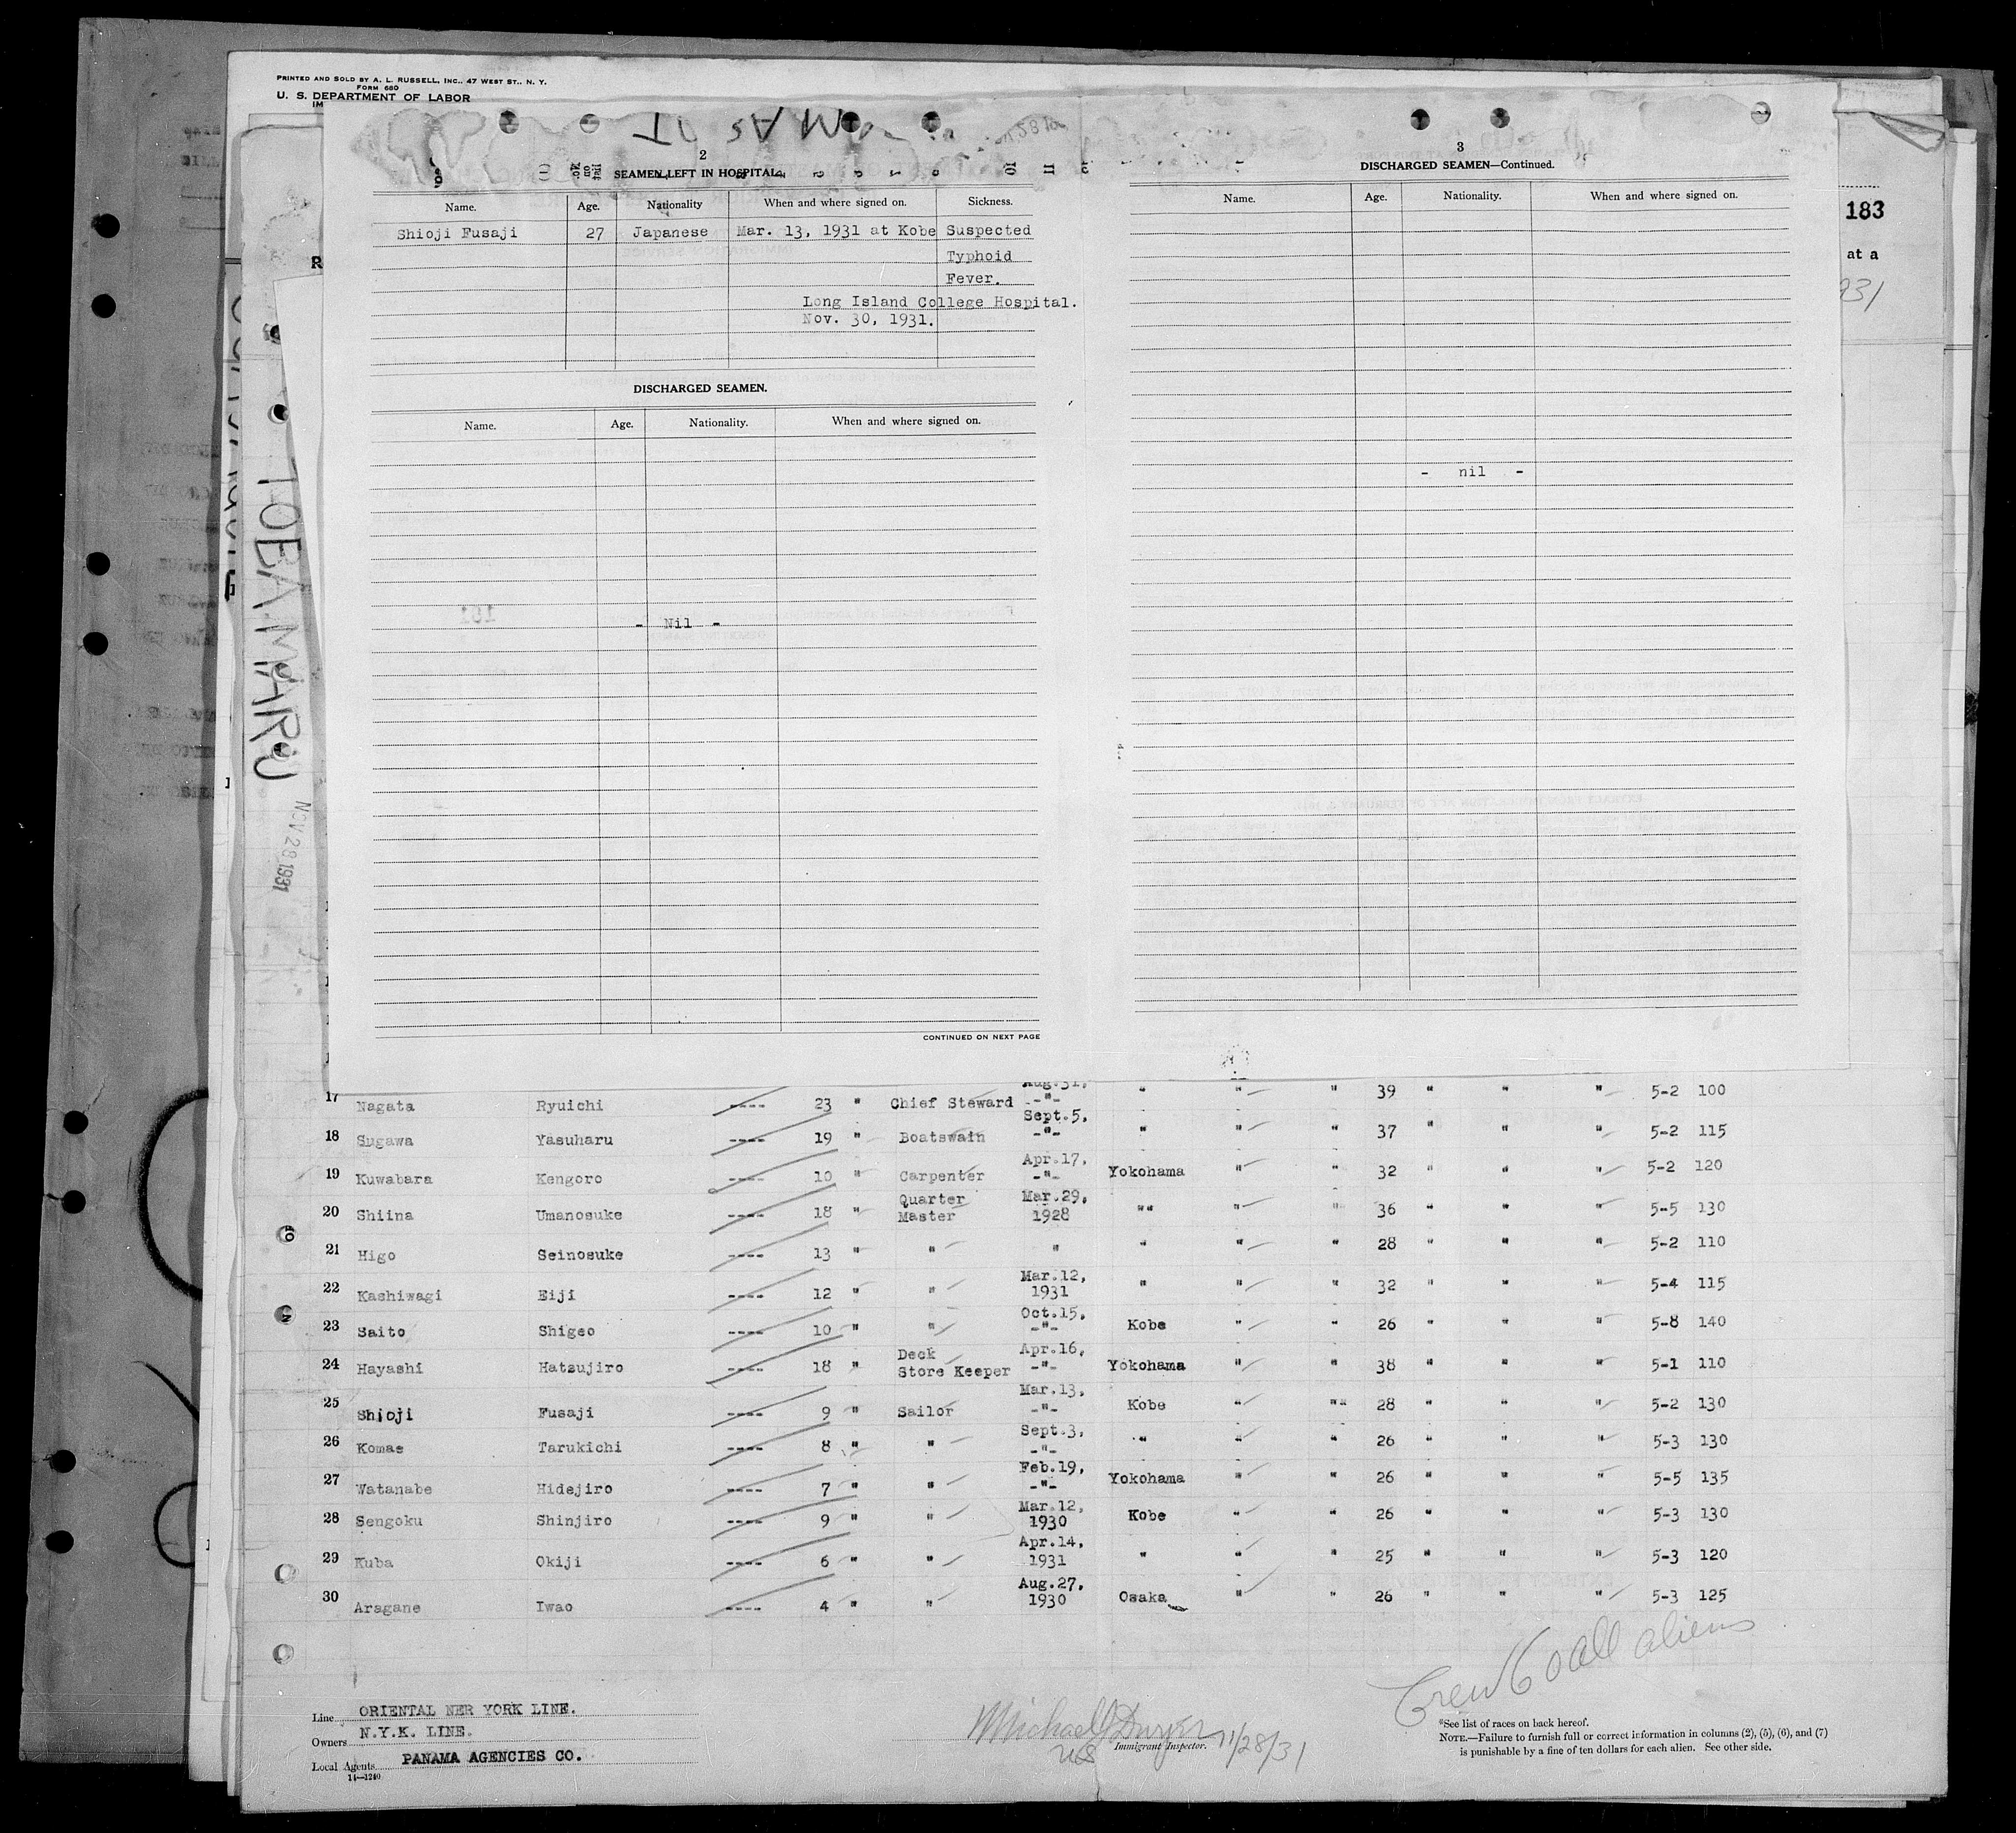 PRINTED AND SOLD BY A. L. RUSSELL, INC., 47 WEST ST., N. Y.
FORM 680
U. S. DEPARTMENT OF LABOR
IM
183
at a
931
R
TOBA MARU
NOV 28 1931
2
SEAMEN LEFT IN HOSPITAL.
Name. Age. Nationality When and where signed on. Sickness.
Shioji Fusaji 27 Japanese Mar. 13, 1931 at Kobe Suspected
Typhoid
Fever.
Long Island College Hospital.
Nov. 30, 1931.
DISCHARGED SEAMEN.
Name. Age. Nationality. When and where signed on.
- Nil -
CONTINUED ON NEXT PAGE
3
DISCHARGED SEAMEN—Continued.
Name. Age. Nationality. When and where signed on.
- nil -
17 Nagata Ryuichi ---- 23 " Chief Steward Aug.31, -"- " " " 39 " " " 5-2 100
18 Sugawa Yasuharu ---- 19 " Boatswain Sept.5, -"- " " " 37 " " " 5-2 115
19 Kuwabara Kengoro ---- 10 " Carpenter Apr.17, -"- Yokohama " " 32 " " " 5-2 120
20 Shiina Umanosuke ---- 18 " Quarter Master Mar.29, 1928 "" " " 36 " " " 5-5 130
21 Higo Seinosuke ---- 13 " " " " " " 28 " " " 5-2 110
22 Kashiwagi Eiji ---- 12 " " Mar.12, 1931 " " " 32 " " " 5-4 115
23 Saito Shigeo ---- 10 " " Oct.15, -"- Kobe " " 26 " " " 5-8 140
24 Hayashi Hatsujiro ---- 18 " Deck Store Keeper Apr.16, -"- Yokohama " " 38 " " " 5-1 110
25 Shioji Fusaji ---- 9 " Sailor Mar.13, -"- Kobe " "" 28 " " " 5-2 130
26 Komae Tarukichi ---- 8 " " Sept.3, -"- " " " 26 " " " 5-3 130
27 Watanabe Hidejiro ---- 7 " " Feb.19, -"- Yokohama " " 26 " " " 5-5 135
28 Sengoku Shinjiro ---- 9 " " Mar.12, 1930 Kobe " " 26 " " " 5-3 130
29 Kuba Okiji ---- 6 " " Apr.14, 1931 " " " 25 " " " 5-3 120
30 Aragane Iwao ---- 4 " " Aug.27, 1930 Osaka " " 26 " " " 5-3 125
Crew 60 all aliens
Line ORIENTAL NER YORK LINE.
Owners N.Y.K. LINE.
Local Agents PANAMA AGENCIES CO.
14—1240
Michael J Dwyer 11/28/31
Immigrant Inspector.
*See list of races on back hereof.
NOTE.—Failure to furnish full or correct information in columns (2), (5), (6), and (7)
is punishable by a fine of ten dollars for each alien. See other side.